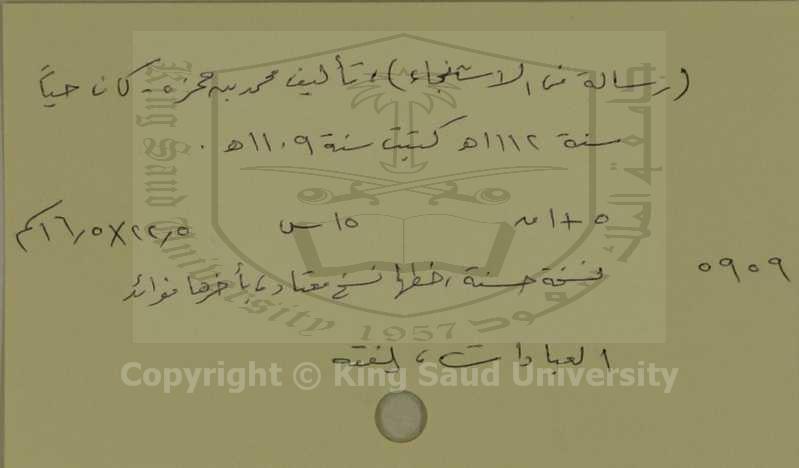 (رسالة في الاستنجاء)، تأليف محمد بن حمزة - كان حياً
سنة ١١١٢هـ كتبت سنة ١١٠٩هـ .
٥ + ١ ق ١٥ س ٢٢٫٥ × ١٦٫٥ كم
٥٩٠٩
نسخة حسنة، خطها نسخ معتاد، بآخرها فوائد
العبادات، لفقه
King Saud University
1957
Copyright © King Saud University